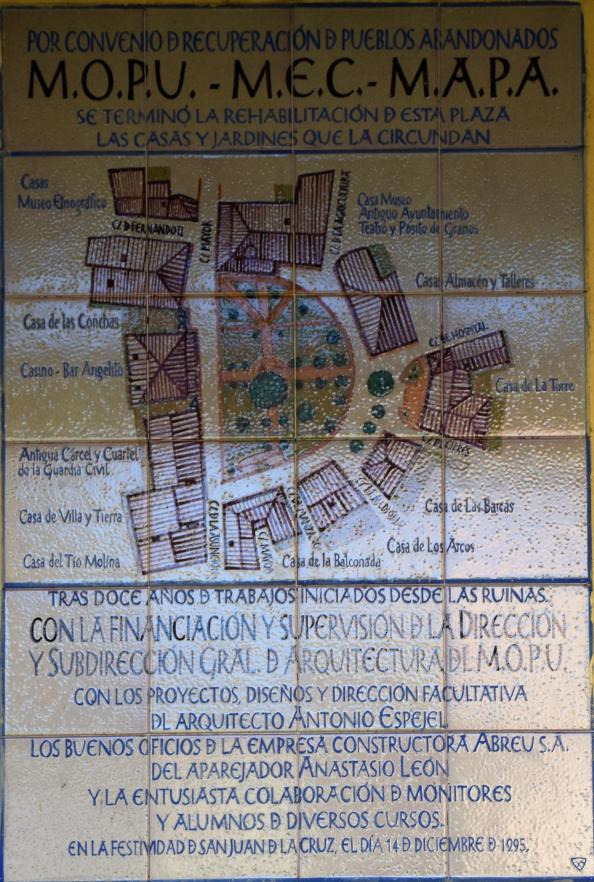 POR CONVENIO Đ RECUPERACIÓN Đ PUEBLOS ABANDONADOS
M.O.P.U. - M.E.C. - M.A.P.A.
SE TERMINÓ LA REHABILITACIÓN Đ ESTA PLAZA
LAS CASAS Y JARDINES QUE LA CIRCUNDAN
Casas
Museo Etnográfico
C/. D FERNANDO II
C/. MAYOR
C/. D LA AGRICULTURA
Casa Museo
Antiguo Ayuntamiento
Teatro y Pósito de Granos
Casas Almacén y Talleres
Casa de las Conchas
C/. DEL HOSPITAL
Casino - Bar Angelito
Casa de La Torre
Antigua Cárcel y Cuartel
de la Guardia Civil
Casa de Villa y Tierra
Casa de Las Barcas
Casa de Los Arcos
Casa del Tío Molina
Casa de la Balconada
TRAS DOCE AÑOS Đ TRABAJOS INICIADOS DESDE LAS RUINAS.
CON LA FINANCIACIÓN Y SUPERVISIÓN Đ LA DIRECCIÓN
Y SUBDIRECCIÓN GRAL. Đ ARQUITECTURA DL M.O.P.U.
CON LOS PROYECTOS, DISEÑOS Y DIRECCIÓN FACULTATIVA
DL ARQUITECTO ANTONIO ESPEJEL
LOS BUENOS OFICIOS Đ LA EMPRESA CONSTRUCTORA ABREU S.A.
DEL APAREJADOR ANASTASIO LEÓN
Y LA ENTUSIASTA COLABORACIÓN Đ MONITORES
Y ALUMNOS Đ DIVERSOS CURSOS.
EN LA FESTIVIDAD Đ SAN JUAN Đ LA CRUZ, EL DÍA 14 Đ DICIEMBRE Đ 1995.